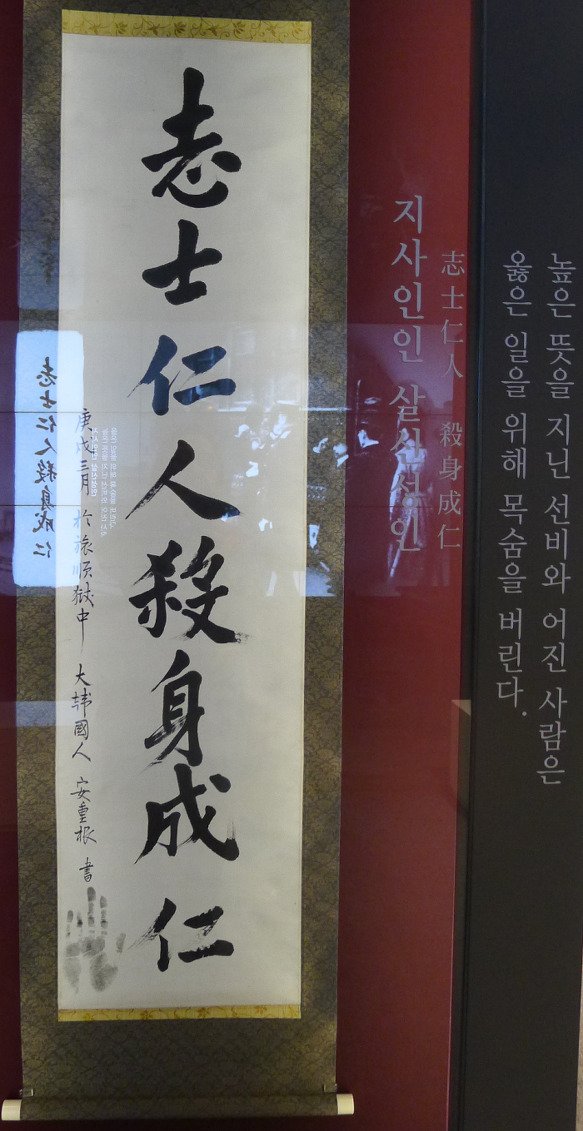 志士仁人殺身成仁
庚戌三月 於旅順獄中 大韓國人 安重根 書
志士仁人殺身成仁
지사인인 살신성인
志士仁人 殺身成仁
높은 뜻을 지닌 선비와 어진 사람은
옳은 일을 위해 목숨을 버린다.